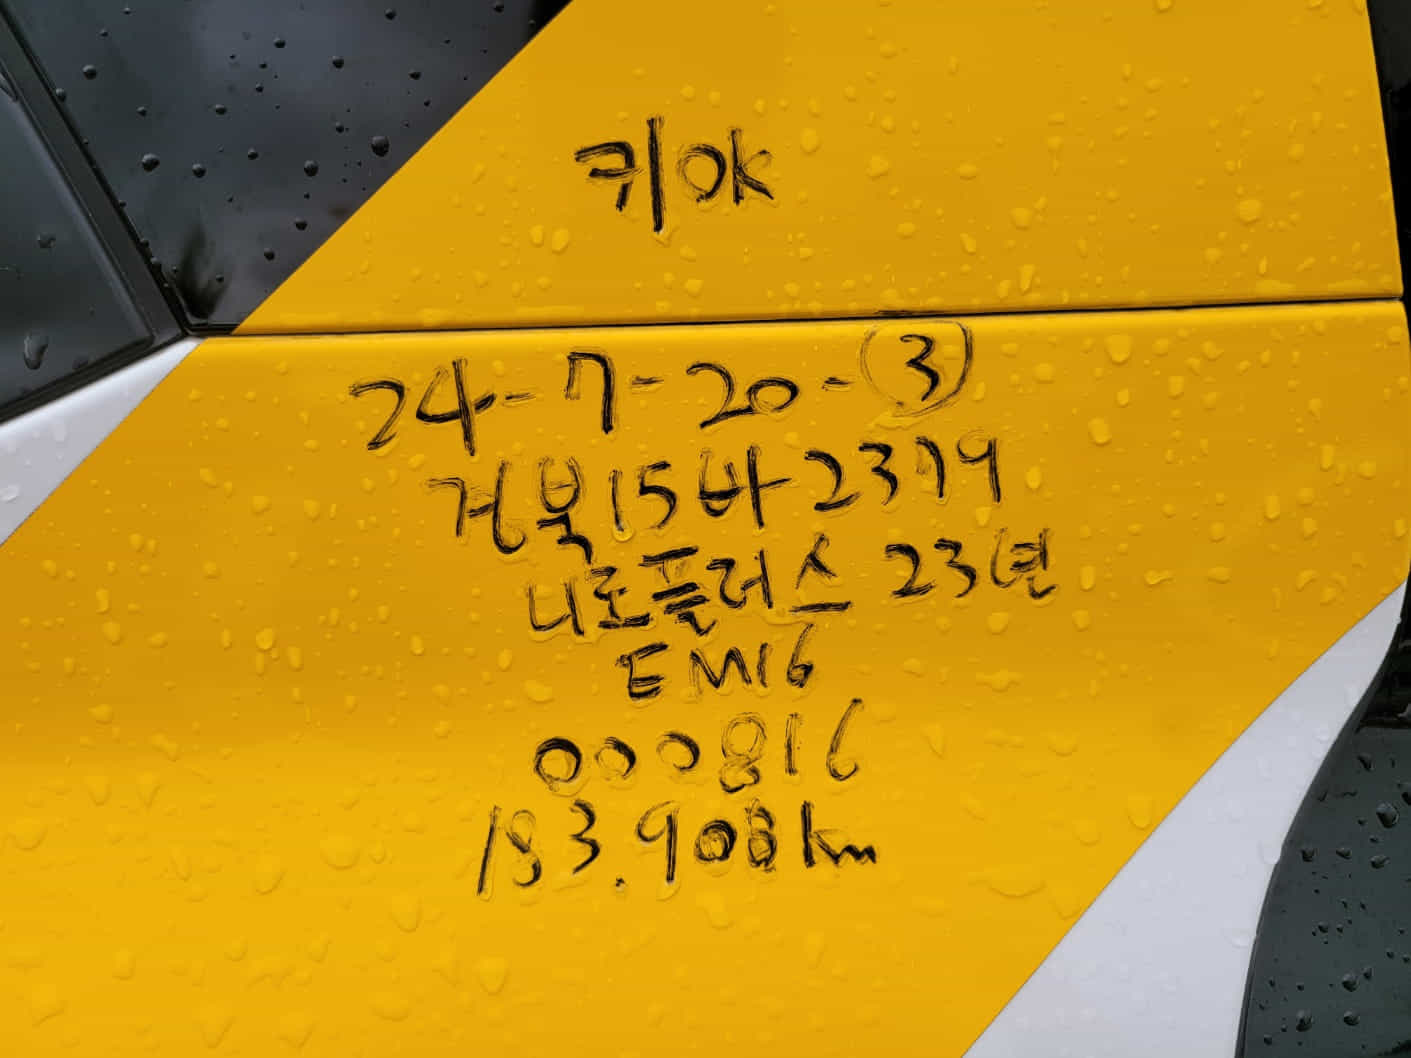 키OK
24-7-20-③
경북15바2379
니로플러스 23년
EM16
000816
183.908km